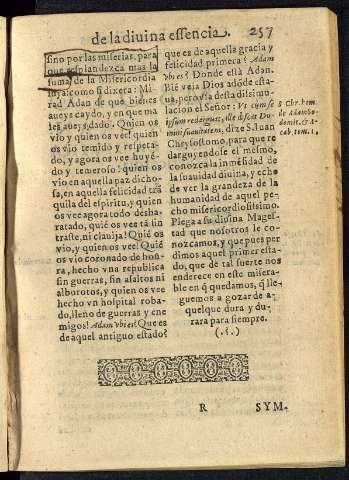 de la diuina essencia. 257
sino por las miserias, para
que resplandezca mas la
suma de la Misericordia
suya: como si dixera: Mi-
rad Adan de que bienes
aueys caydo, y en que ma-
les aueys dado. Quien os
vio y quien os vee! quien
os vio temido y respeta-
do, y agora os vee huyẽ-
do y temeroso! quien os
vio en aquella paz dicho-
sa, en aquella felicidad trã
quila del espiritu, y quien
os vee agora todo desba-
ratado, quiẽ os vee tã sin
traste, ni clauija! Quiẽ os
vio, y quien os vee! Quiẽ
os vio coronado de hon-
ra, hecho vna republica
sin guerras, sin asaltos ni
alborotos, y quien os vee
hecho vn hospital roba-
do, lleno de guerras y ene
migos! Adam vbi es? Que es
de aquel antiguo estado?
que es de aquella gracia y
felicidad primera? Adam
vbi es? Donde està Adan.
Biẽ veia Dios adõde esta-
ua, pero vsa desta dissimu-
lacion el Señor: Vt cum se
ipsum redarguit, ille discat Do-
mini suauitatem, dize S. Iuan
Chrysostomo, para que re
darguyendose el mesmo,
conozca la inmẽsidad de
la suauidad diuina, y eche
de ver la grandeza de la
humanidad de aquel pe-
cho misericordiosissimo.
Plega a su diuina Mages-
tad que nosotros le co-
nozcamos, y que pues per
dimos aquel primer esta-
do, que de tal suerte nos
enderece en este misera-
ble en q̃ quedamos, q̃ lle-
guemos a gozar de a-
quel que dura y du-
rara para siempre.
(.⸫.)
S Chr. hom.
de Adam
domit. & A-
cab. tom. 1.
R SYM-